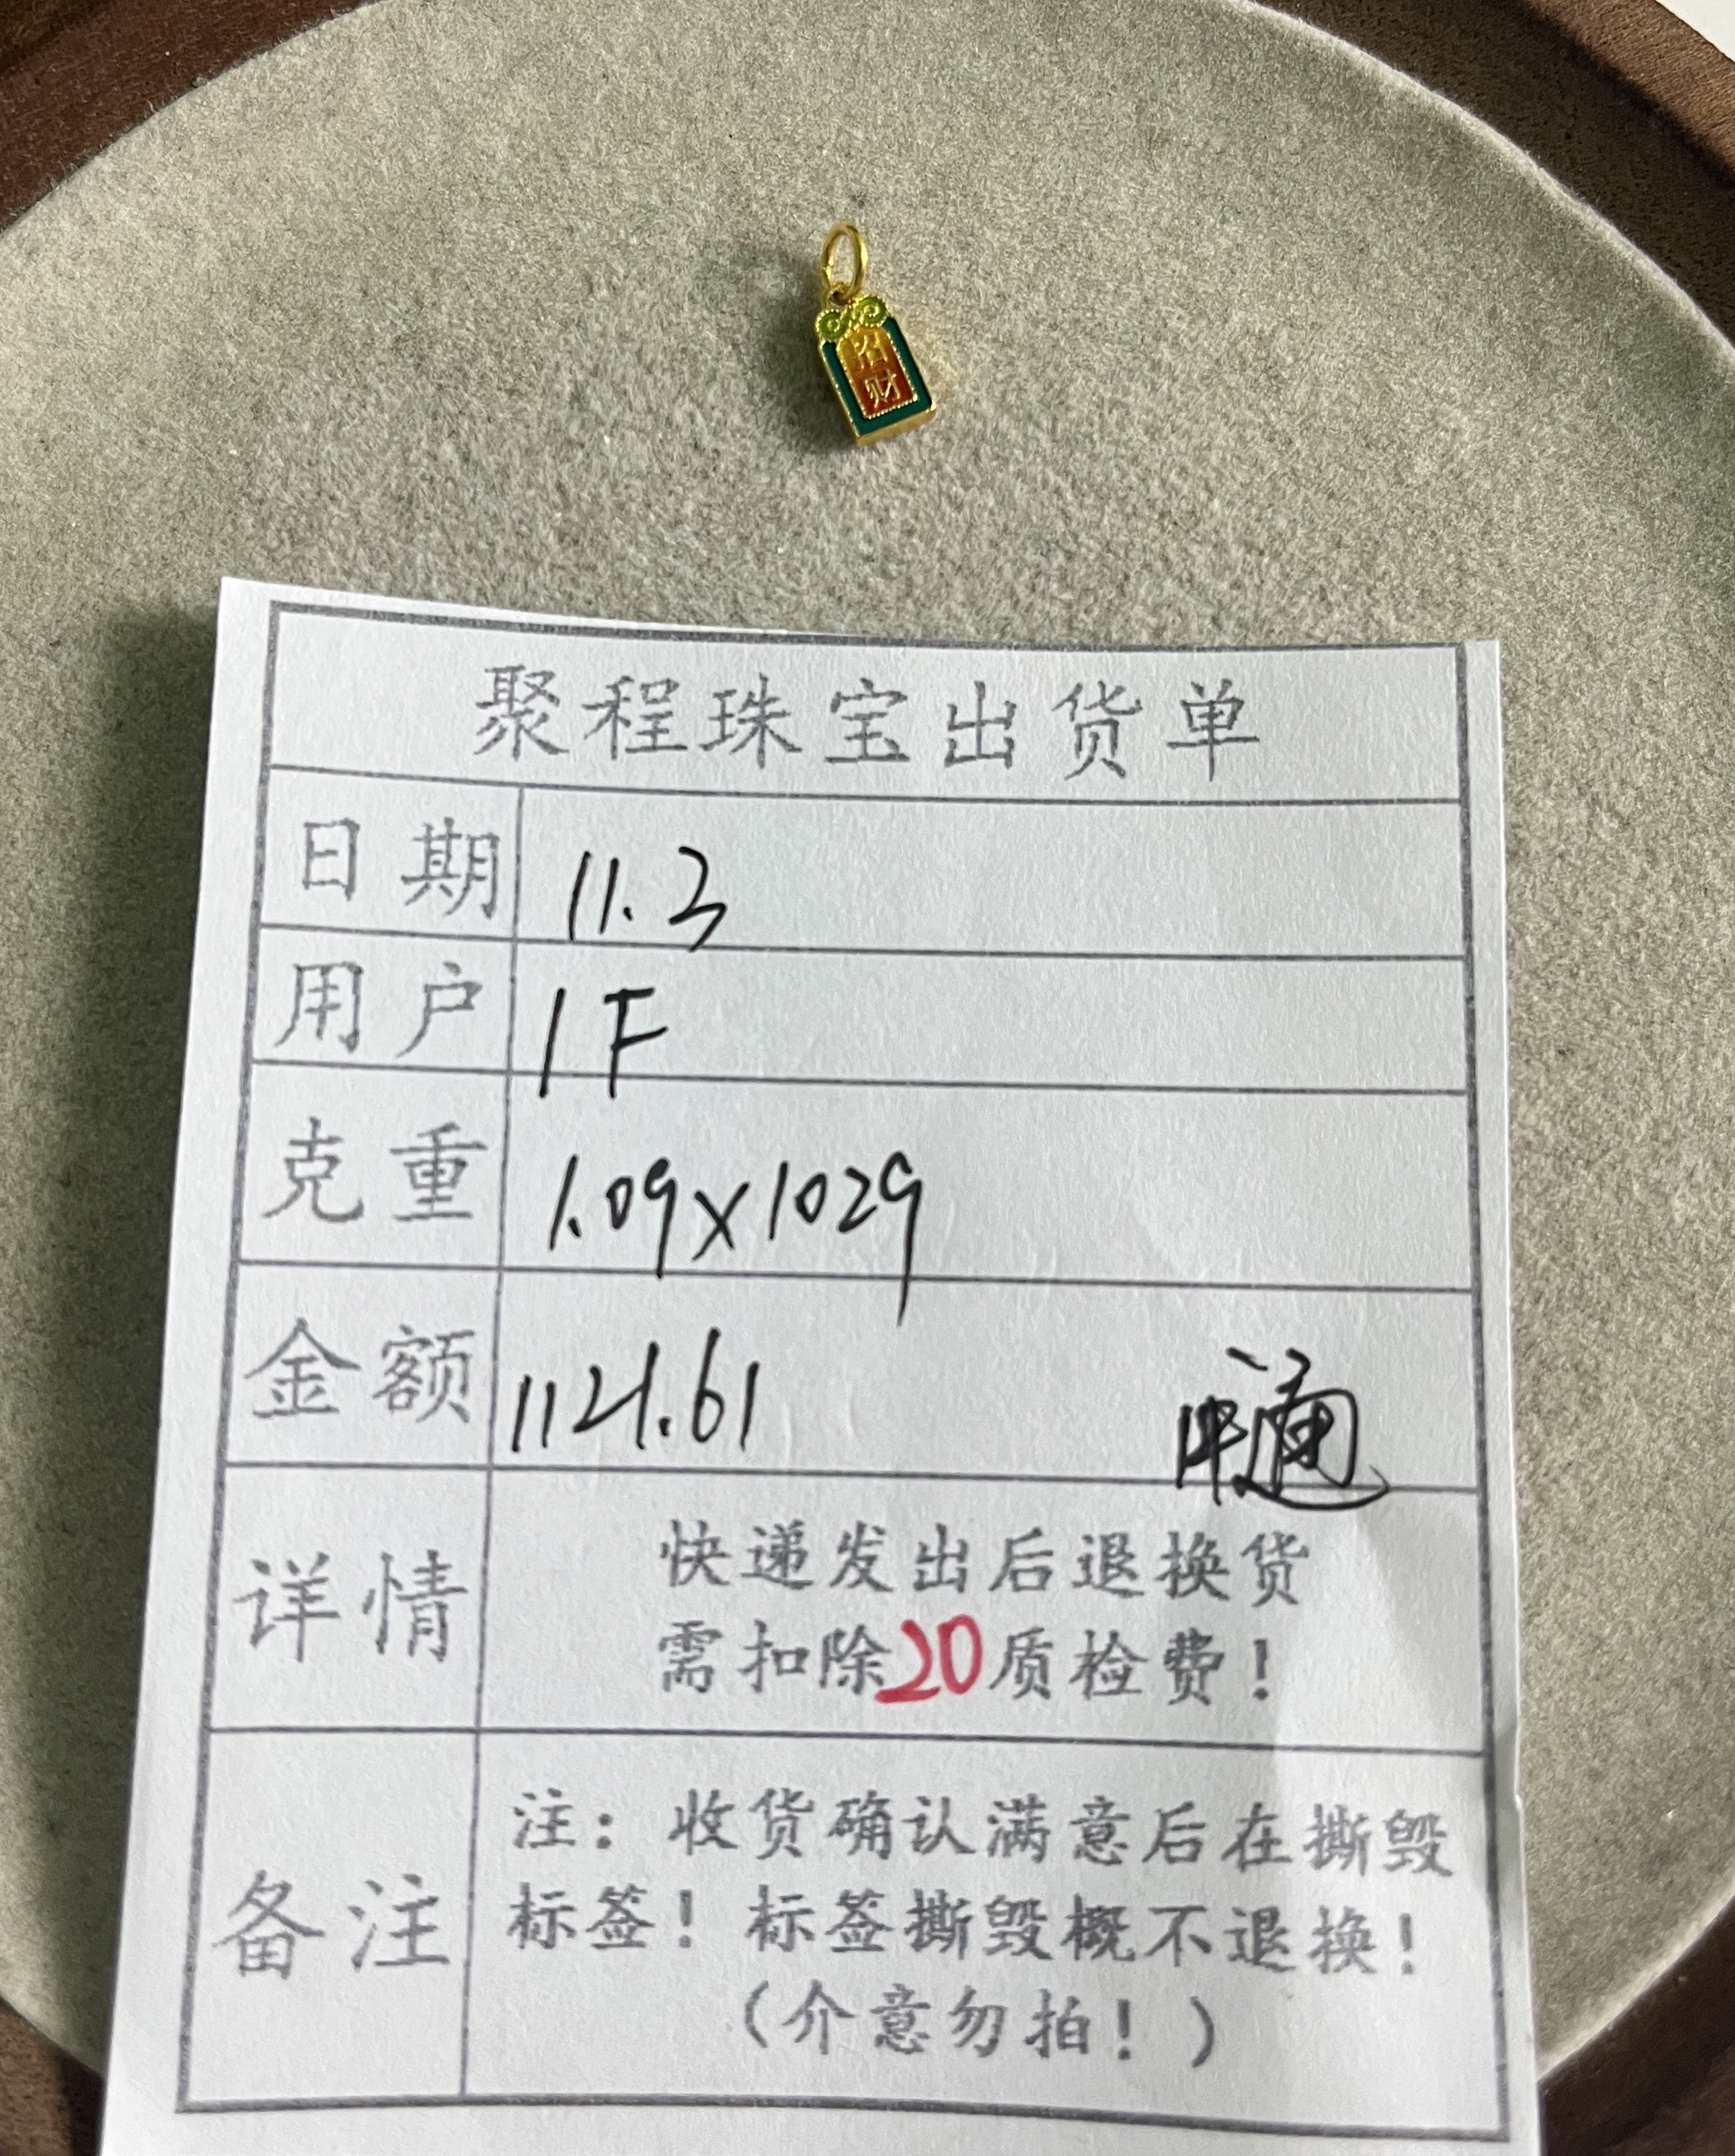 招
财
聚程珠宝出货单
日期 11.3
用户 1F
克重 1.09×1029
金额 1121.61 申通
详情 快递发出后退换货
需扣除20质检费！
备注 注：收货确认满意后在撕毁
标签！标签撕毁概不退换！
（介意勿拍！）